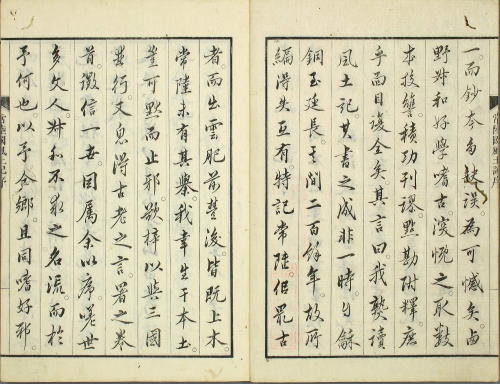 一而鈔本多缺誤。為可憾矣。西
野叔和好學嗜古。深慨之。取數
本挍讐。積功刊謬。點勘附釋。庶
乎面目復全矣。其言曰。我甞讀
風土記。其書之成非一時。自龢
銅至延長。其間二百餘年。故所
編得失互有。特記常陸侶最古
者而出雲肥前豐後皆既上木。
常陸未有其舉。我幸生于本土。
豈可默而止邪。欲梓以與三國
並行。又息得古老之言。署之卷
首。徵信一世。因属余以序。嗟世
多文人。叔和不求之名流。而於
予何也。以予仝鄉。且同嗜好邪。